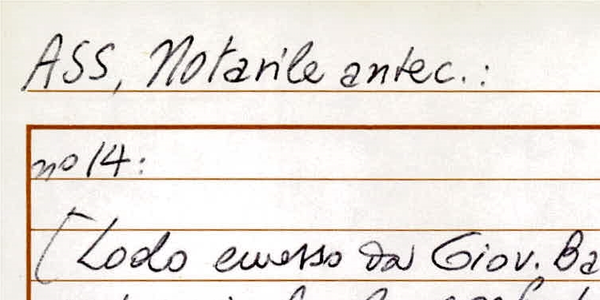 ASS, Notarile antec.:
nº 14:
[Lodo emesso da Giov. Ba